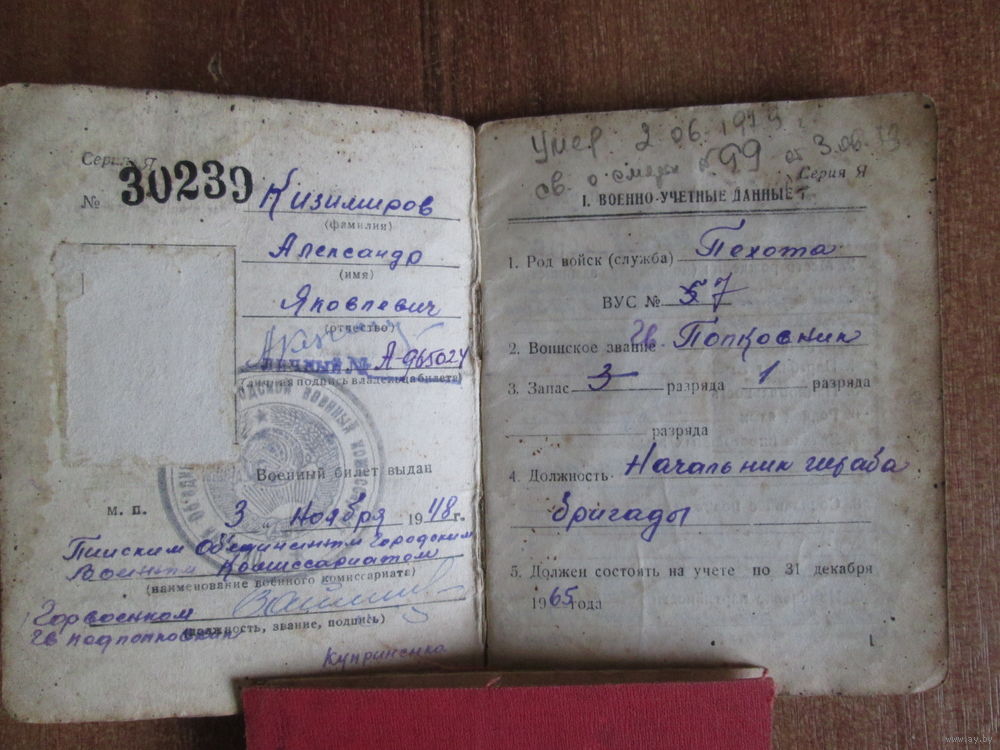 Серия Я
№ 30239
Кизимиров
(фамилия)
Александр
(имя)
Яковлевич
(отчество)
ЛИЧНЫЙ № А-965024
(личная подпись владельца билета)
Военный билет выдан
м. п. 3 " ноября 1948 г.
Пинским Объединенным Городским
Военным Комиссариатом
(наименование военного комиссариата)
Горвоенком
гв подполковник
(должность, звание, подпись)
Куприненко
Умер 2.06.1979 г
св. о смерти № 99 от 3.06.
Серия Я
I. ВОЕННО-УЧЕТНЫЕ ДАННЫЕ
1. Род войск (служба) Пехота
ВУС №
2. Воинское звание гв. Полковник
3. Запас 3 разряда 1 разряда
разряда
4. Должность Начальник штаба
бригады
5. Должен состоять на учете по 31 декабря
1965 года
1
www.ay.by